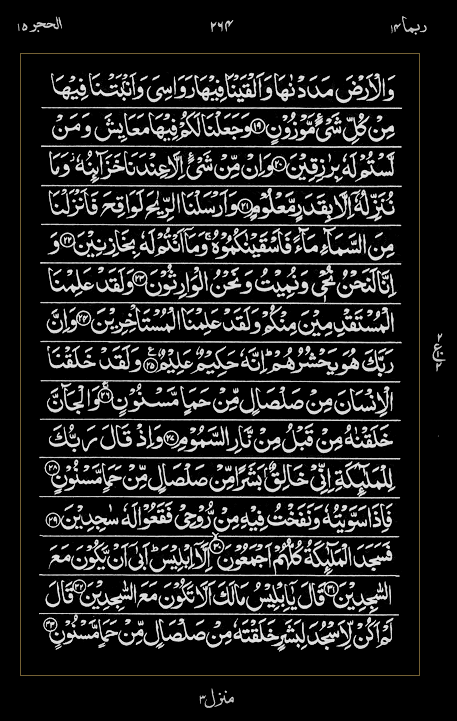 ربما ١٤
٢٦٤
الحجر ١٥
وَالْاَرْضَ مَدَدْنٰهَا وَاَلْقَيْنَا فِيْهَا رَوَاسِيَ وَاَنْۢبَتْنَا فِيْهَا
مِنْ كُلِّ شَيْءٍ مَّوْزُوْنٍ ﴿١٩﴾ وَجَعَلْنَا لَكُمْ فِيْهَا مَعَايِشَ وَمَنْ
لَّسْتُمْ لَهٗ بِرٰزِقِيْنَ ﴿٢٠﴾ وَاِنْ مِّنْ شَيْءٍ اِلَّا عِنْدَنَا خَزَآئِنُهٗ وَمَا
نُنَزِّلُهٗۤ اِلَّا بِقَدَرٍ مَّعْلُوْمٍ ﴿٢١﴾ وَاَرْسَلْنَا الرِّيٰحَ لَوَاقِحَ فَاَنْزَلْنَا
مِنَ السَّمَآءِ مَآءً فَاَسْقَيْنٰكُمُوْهُ وَمَاۤ اَنْتُمْ لَهٗ بِخَازِنِيْنَ ﴿٢٢﴾ وَ
اِنَّا لَنَحْنُ نُحْيٖ وَنُمِيْتُ وَنَحْنُ الْوَارِثُوْنَ ﴿٢٣﴾ وَلَقَدْ عَلِمْنَا
الْمُسْتَقْدِمِيْنَ مِنْكُمْ وَلَقَدْ عَلِمْنَا الْمُسْتَاْخِرِيْنَ ﴿٢٤﴾ وَاِنَّ
رَبَّكَ هُوَ يَحْشُرُهُمْ ؕ اِنَّهٗ حَكِيْمٌ عَلِيْمٌ ﴿٢٥﴾ وَلَقَدْ خَلَقْنَا
الْاِنْسَانَ مِنْ صَلْصَالٍ مِّنْ حَمَاٍ مَّسْنُوْنٍ ﴿٢٦﴾ وَالْجَآنَّ
خَلَقْنٰهُ مِنْ قَبْلُ مِنْ نَّارِ السَّمُوْمِ ﴿٢٧﴾ وَاِذْ قَالَ رَبُّكَ
لِلْمَلٰٓئِكَةِ اِنِّيْ خَالِقٌۢ بَشَرًا مِّنْ صَلْصَالٍ مِّنْ حَمَاٍ مَّسْنُوْنٍ ﴿٢٨﴾
فَاِذَا سَوَّيْتُهٗ وَنَفَخْتُ فِيْهِ مِنْ رُّوْحِيْ فَقَعُوْا لَهٗ سٰجِدِيْنَ ﴿٢٩﴾
فَسَجَدَ الْمَلٰٓئِكَةُ كُلُّهُمْ اَجْمَعُوْنَ ﴿٣٠﴾ اِلَّاۤ اِبْلِيْسَ ؕ اَبٰۤى اَنْ يَّكُوْنَ مَعَ
السّٰجِدِيْنَ ﴿٣١﴾ قَالَ يٰۤاِبْلِيْسُ مَا لَكَ اَلَّا تَكُوْنَ مَعَ السّٰجِدِيْنَ ﴿٣٢﴾ قَالَ
لَمْ اَكُنْ لِّاَسْجُدَ لِبَشَرٍ خَلَقْتَهٗ مِنْ صَلْصَالٍ مِّنْ حَمَاٍ مَّسْنُوْنٍ ﴿٣٣﴾
٢
ع
٢
منزل ٣